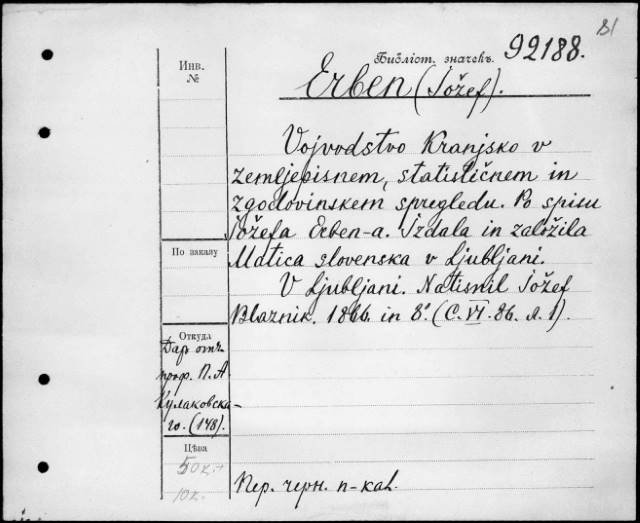 81
Библіот. значекъ. 92188.
Инв.
№
Erben (Jožef).
Vojvodstvo Kranjsko v
zemljepisnem, statističnem in
zgodovinskem spregledu. Po spisu
Jožefa Erben-a. Izdala in založila
Matica slovenska v Ljubljani.
V Ljubljani. Natisnil Jožef
Blaznik. 1866. in 8°. (C. VI. 86. л. 1).
По заказу
Откуда
Даръ отъ
проф. П. А
Кулаковска-
го. (148).
Цѣна
50 к.
10 к.
Пер. черн. п-кal.